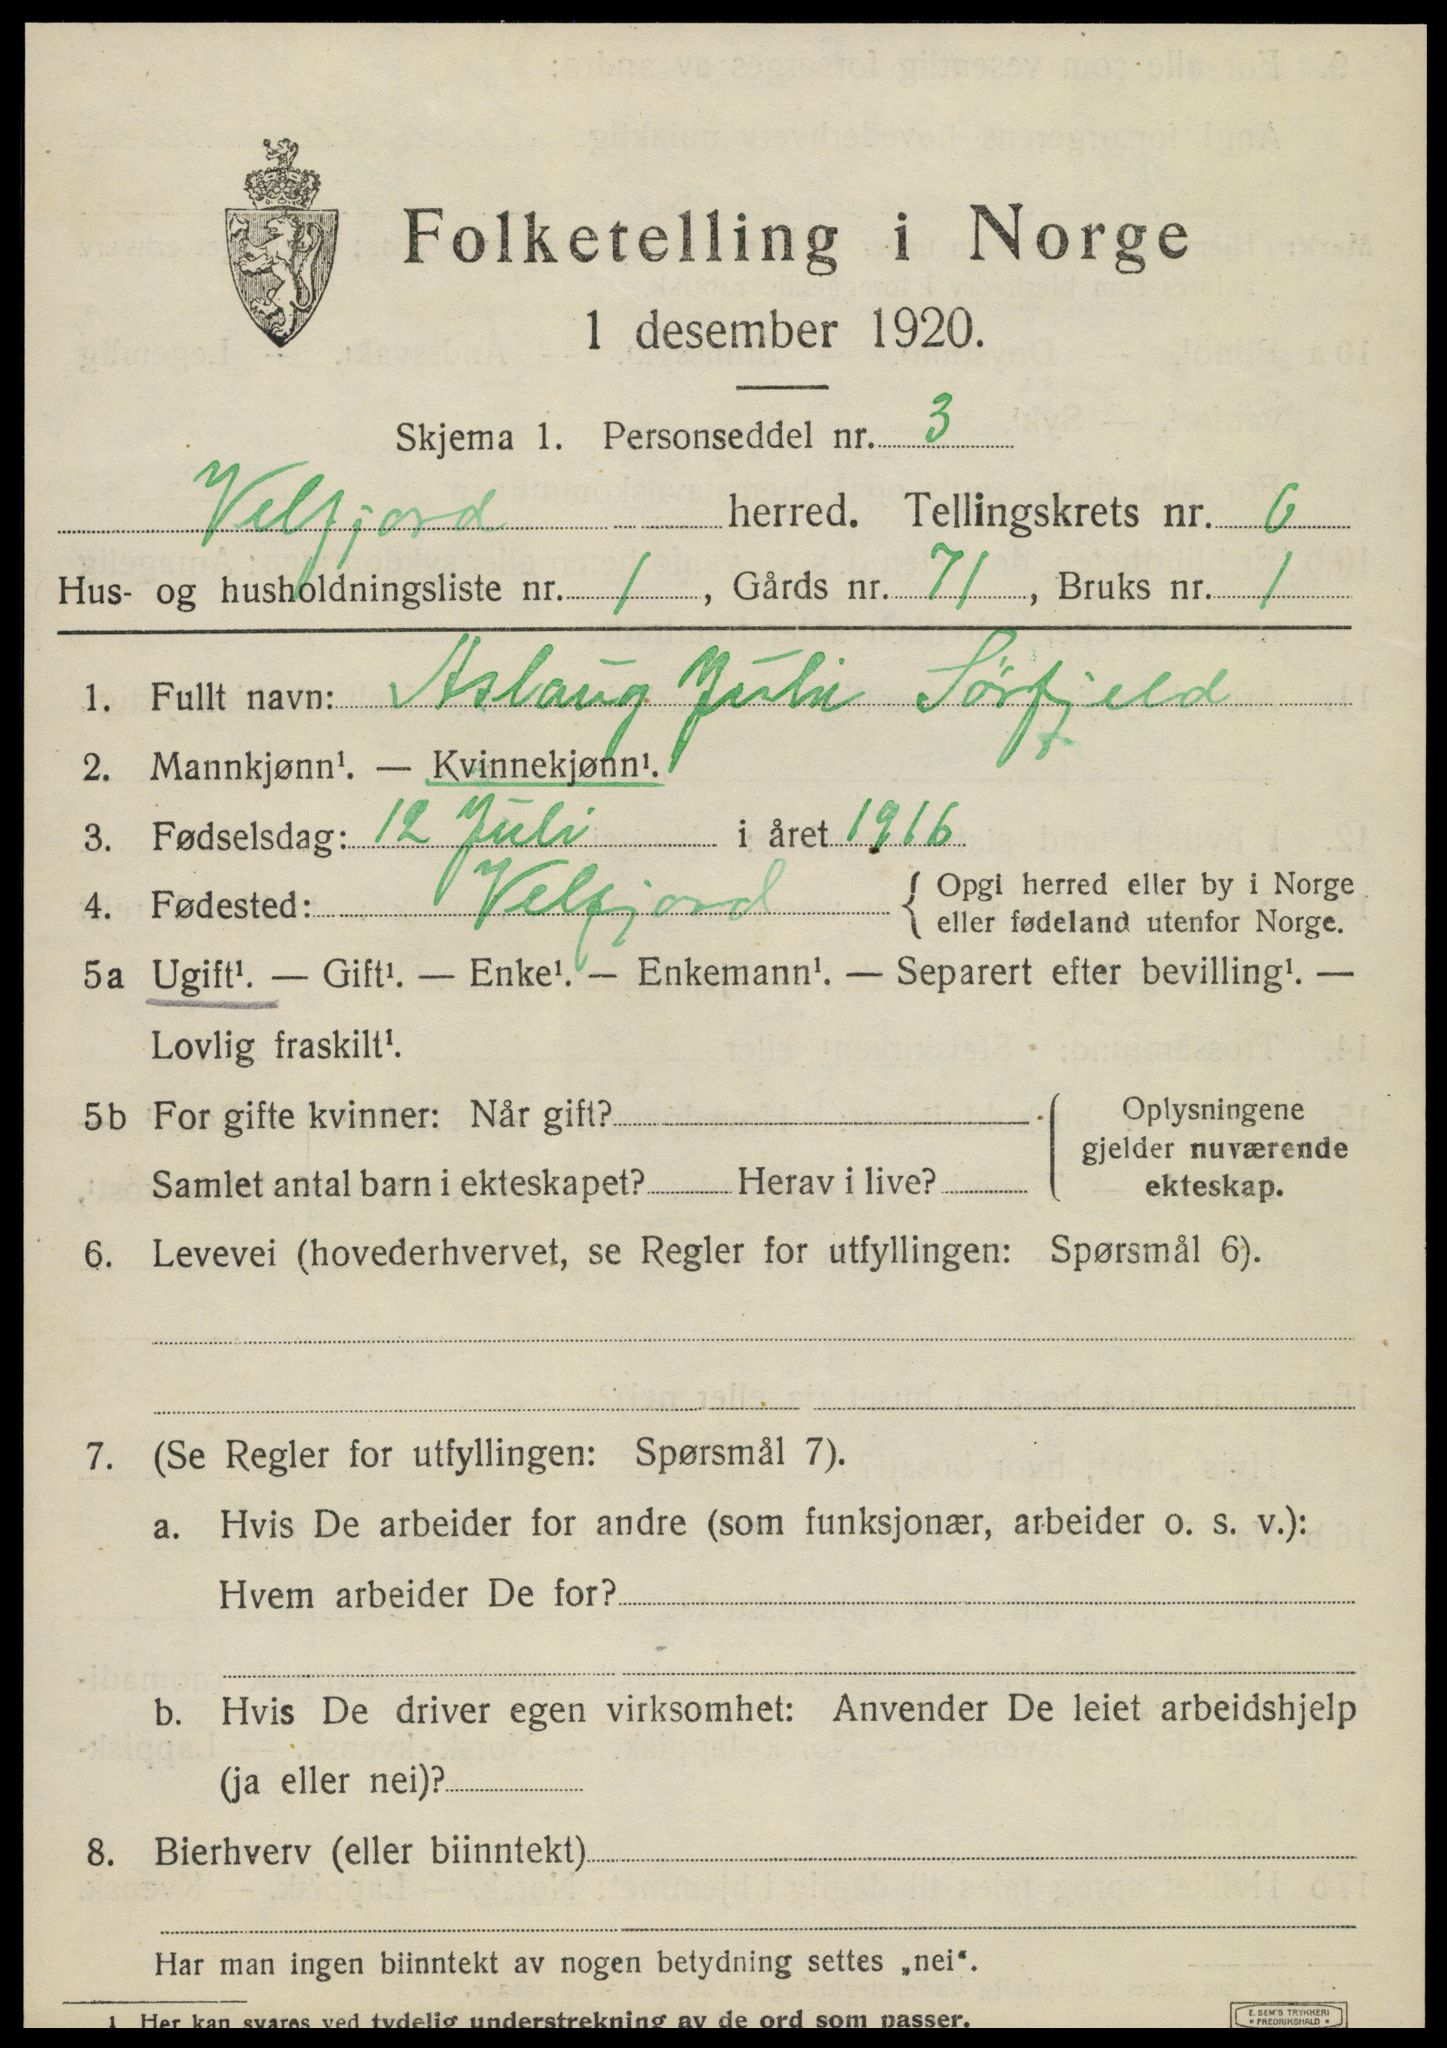 Folketelling i Norge
1 desember 1920.
Skjema 1. Personseddel nr. 3
Velfjord herred. Tellingskrets nr. 6
Hus- og husholdningsliste nr. 1, Gårds nr. 71, Bruks nr. 1
1. Fullt navn: Aslaug Juli Sörfjeld
2. Mannkjønn¹. — Kvinnekjønn¹.
3. Fødselsdag: 12 Juli i året 1916
4. Fødested: Velfjord { Opgi herred eller by i Norge
eller fødeland utenfor Norge.
5a Ugift¹. — Gift¹. — Enke¹. — Enkemann¹. — Separert efter bevilling¹. —
Lovlig fraskilt¹.
5b For gifte kvinner: Når gift?
Samlet antal barn i ekteskapet? Herav i live?
Oplysningene
gjelder nuværende
ekteskap.
6. Levevei (hovederhvervet, se Regler for utfyllingen: Spørsmål 6).
7. (Se Regler for utfyllingen: Spørsmål 7).
a. Hvis De arbeider for andre (som funksjonær, arbeider o. s. v.):
Hvem arbeider De for?
b. Hvis De driver egen virksomhet: Anvender De leiet arbeidshjelp
(ja eller nei)?
8. Bierhverv (eller biinntekt)
Har man ingen biinntekt av nogen betydning settes „nei“.
1 Her kan svares ved tydelig understrekning av de ord som passer.
E. SEM'S TRYKKERI
• FREDRIKSHALD •